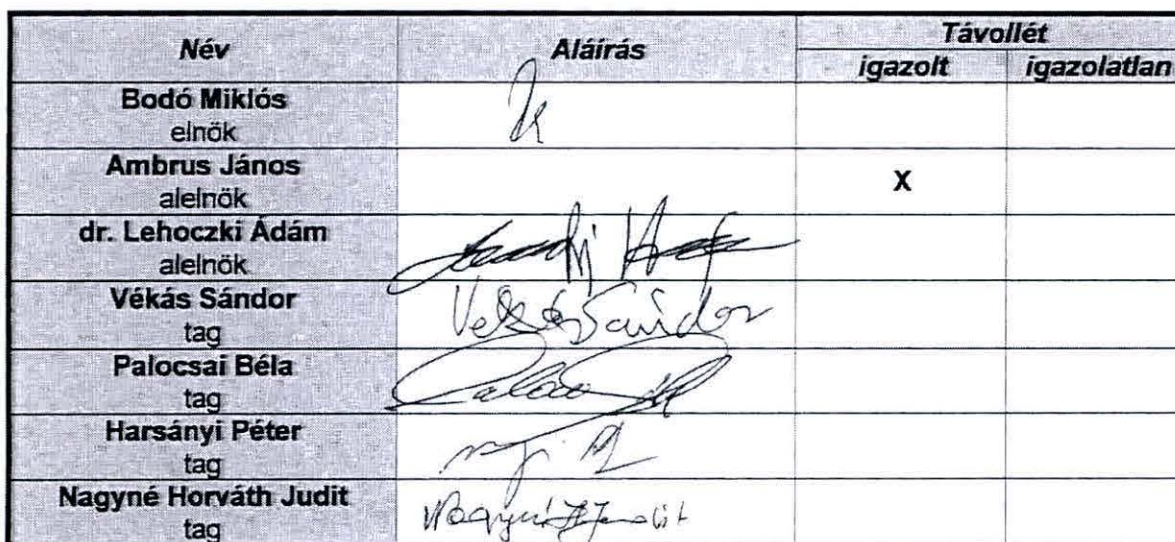 Név Aláírás Távollét
igazolt igazolatlan
Bodó Miklós
elnök
Ambrus János
alelnök X
dr. Lehoczki Ádám
alelnök
Vékás Sándor Vékás Sándor
tag
Palocsai Béla
tag
Harsányi Péter
tag
Nagyné Horváth Judit
tag